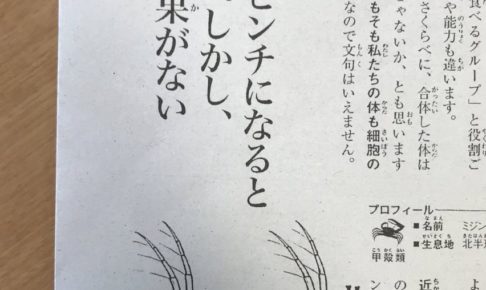 食べるグループ」と役割ご
や能力も違います。
さくらべに、合体した体は
ゃないか、とも思います
もそも私たちの体も細胞の
なので文句はいえません。
ピンチになると
しかし、
果がない
プロフィール
■名前 ミジン
■生息地 北半
甲殻類
よ
の
近
ン